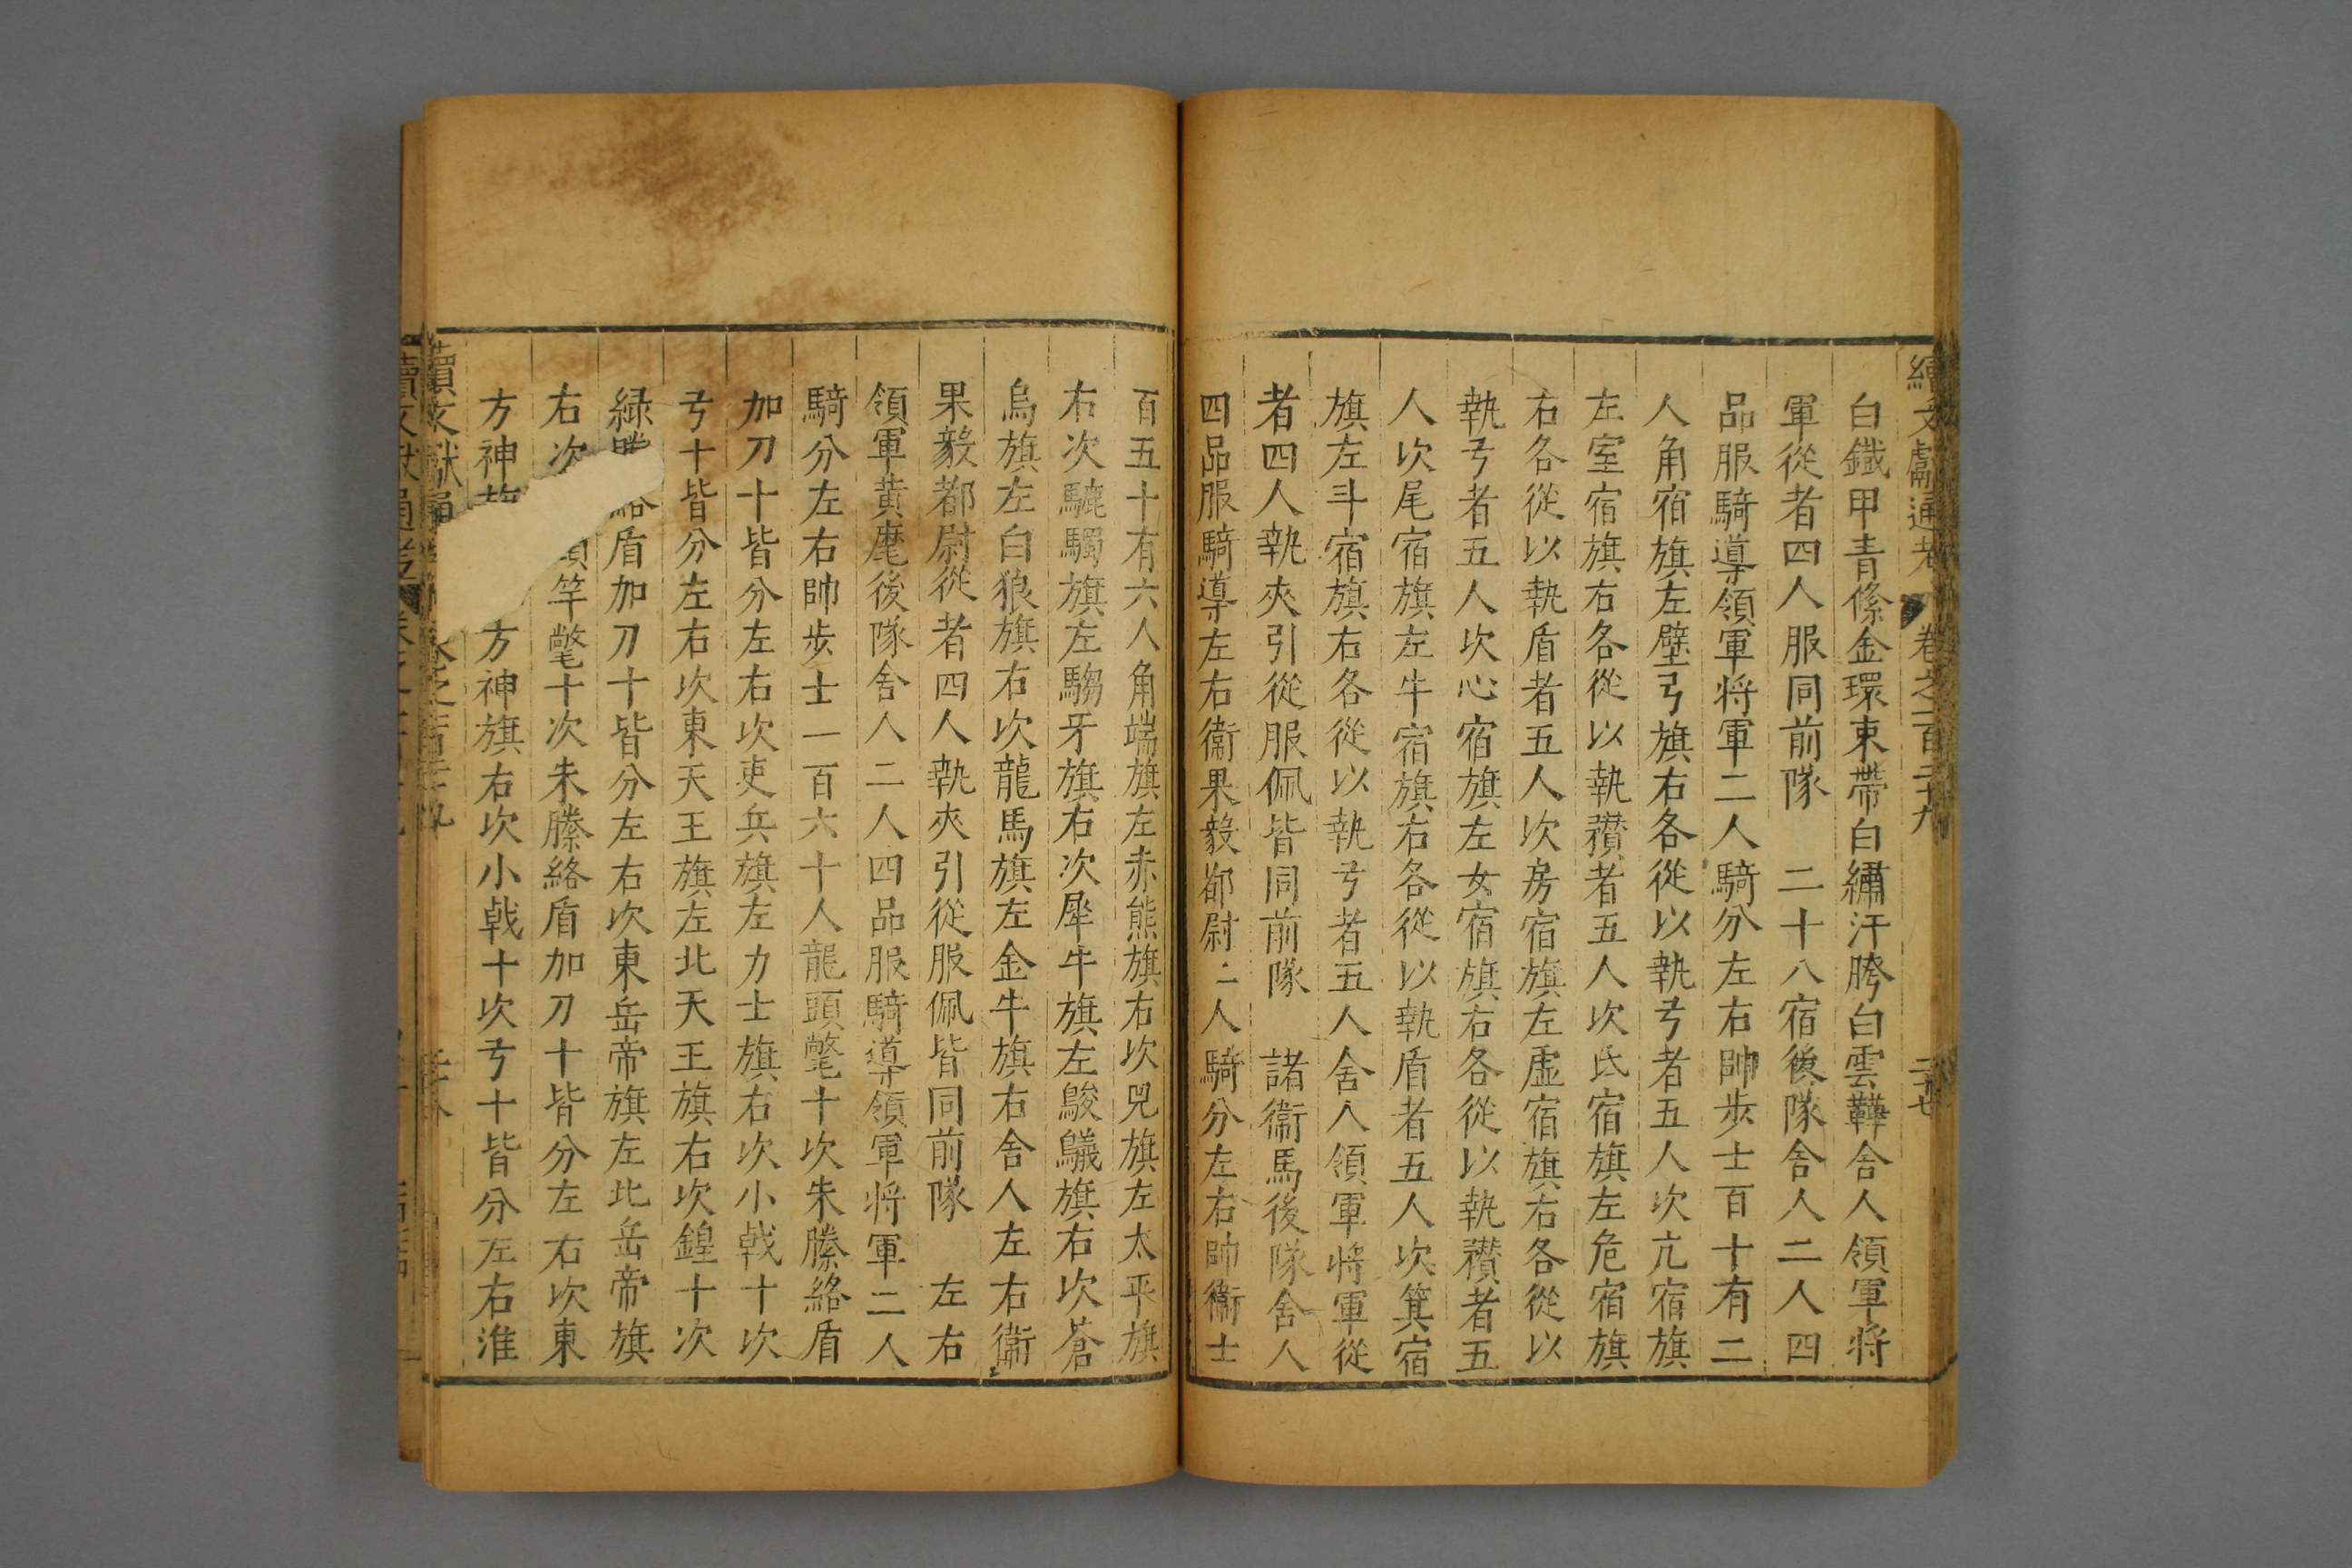 續文獻通考 卷之一百二十九 二十七
白鐵甲青絛金環束帶白繡汗胯白雲鞾舍人領軍將
軍從者四人服同前隊 二十八宿後隊舍人二人四
品服騎導領軍将軍二人騎分左右帥步士百十有二
人角宿旗左壁宿旗右各從以執弓者五人次亢宿旗
左室宿旗右各從以執穳者五人次氐宿旗左危宿旗
右各從以執盾者五人次房宿旗左虛宿旗右各從以
執弓者五人次心宿旗左女宿旗右各從以執穳者五
人次尾宿旗左牛宿旗右各從以執盾者五人次箕宿
旗左斗宿旗右各從以執弓者五人舍人領軍將軍從
者四人執夾引從服佩皆同前隊 諸衞馬後隊舍人
四品服騎導左右衞果毅都尉二人騎分左右帥衞士
百五十有六人角端旗左赤熊旗右次兕旗左太平旗
右次驢騾旗左騶牙旗右次犀牛旗左鵔鸃旗右次蒼
烏旗左白狼旗右次龍馬旗左金牛旗右舍人左右衞
果毅都尉從者四人執夾引從服佩皆同前隊 左右
領軍黄麾後隊舍人二人四品服騎導領軍将軍二人
騎分左右帥步士一百六十人龍頭氅十次朱縢絡盾
加刀十皆分左右次吏兵旗左力士旗右次小戟十次
弓十皆分左右次東天王旗左北天王旗右次鍠十次
緑縢絡盾加刀十皆分左右次東岳帝旗左北岳帝旗
右次 竿氅十次朱縢絡盾加刀十皆分左右次東
方神旗 方神旗右次小戟十次弓十皆分左右淮